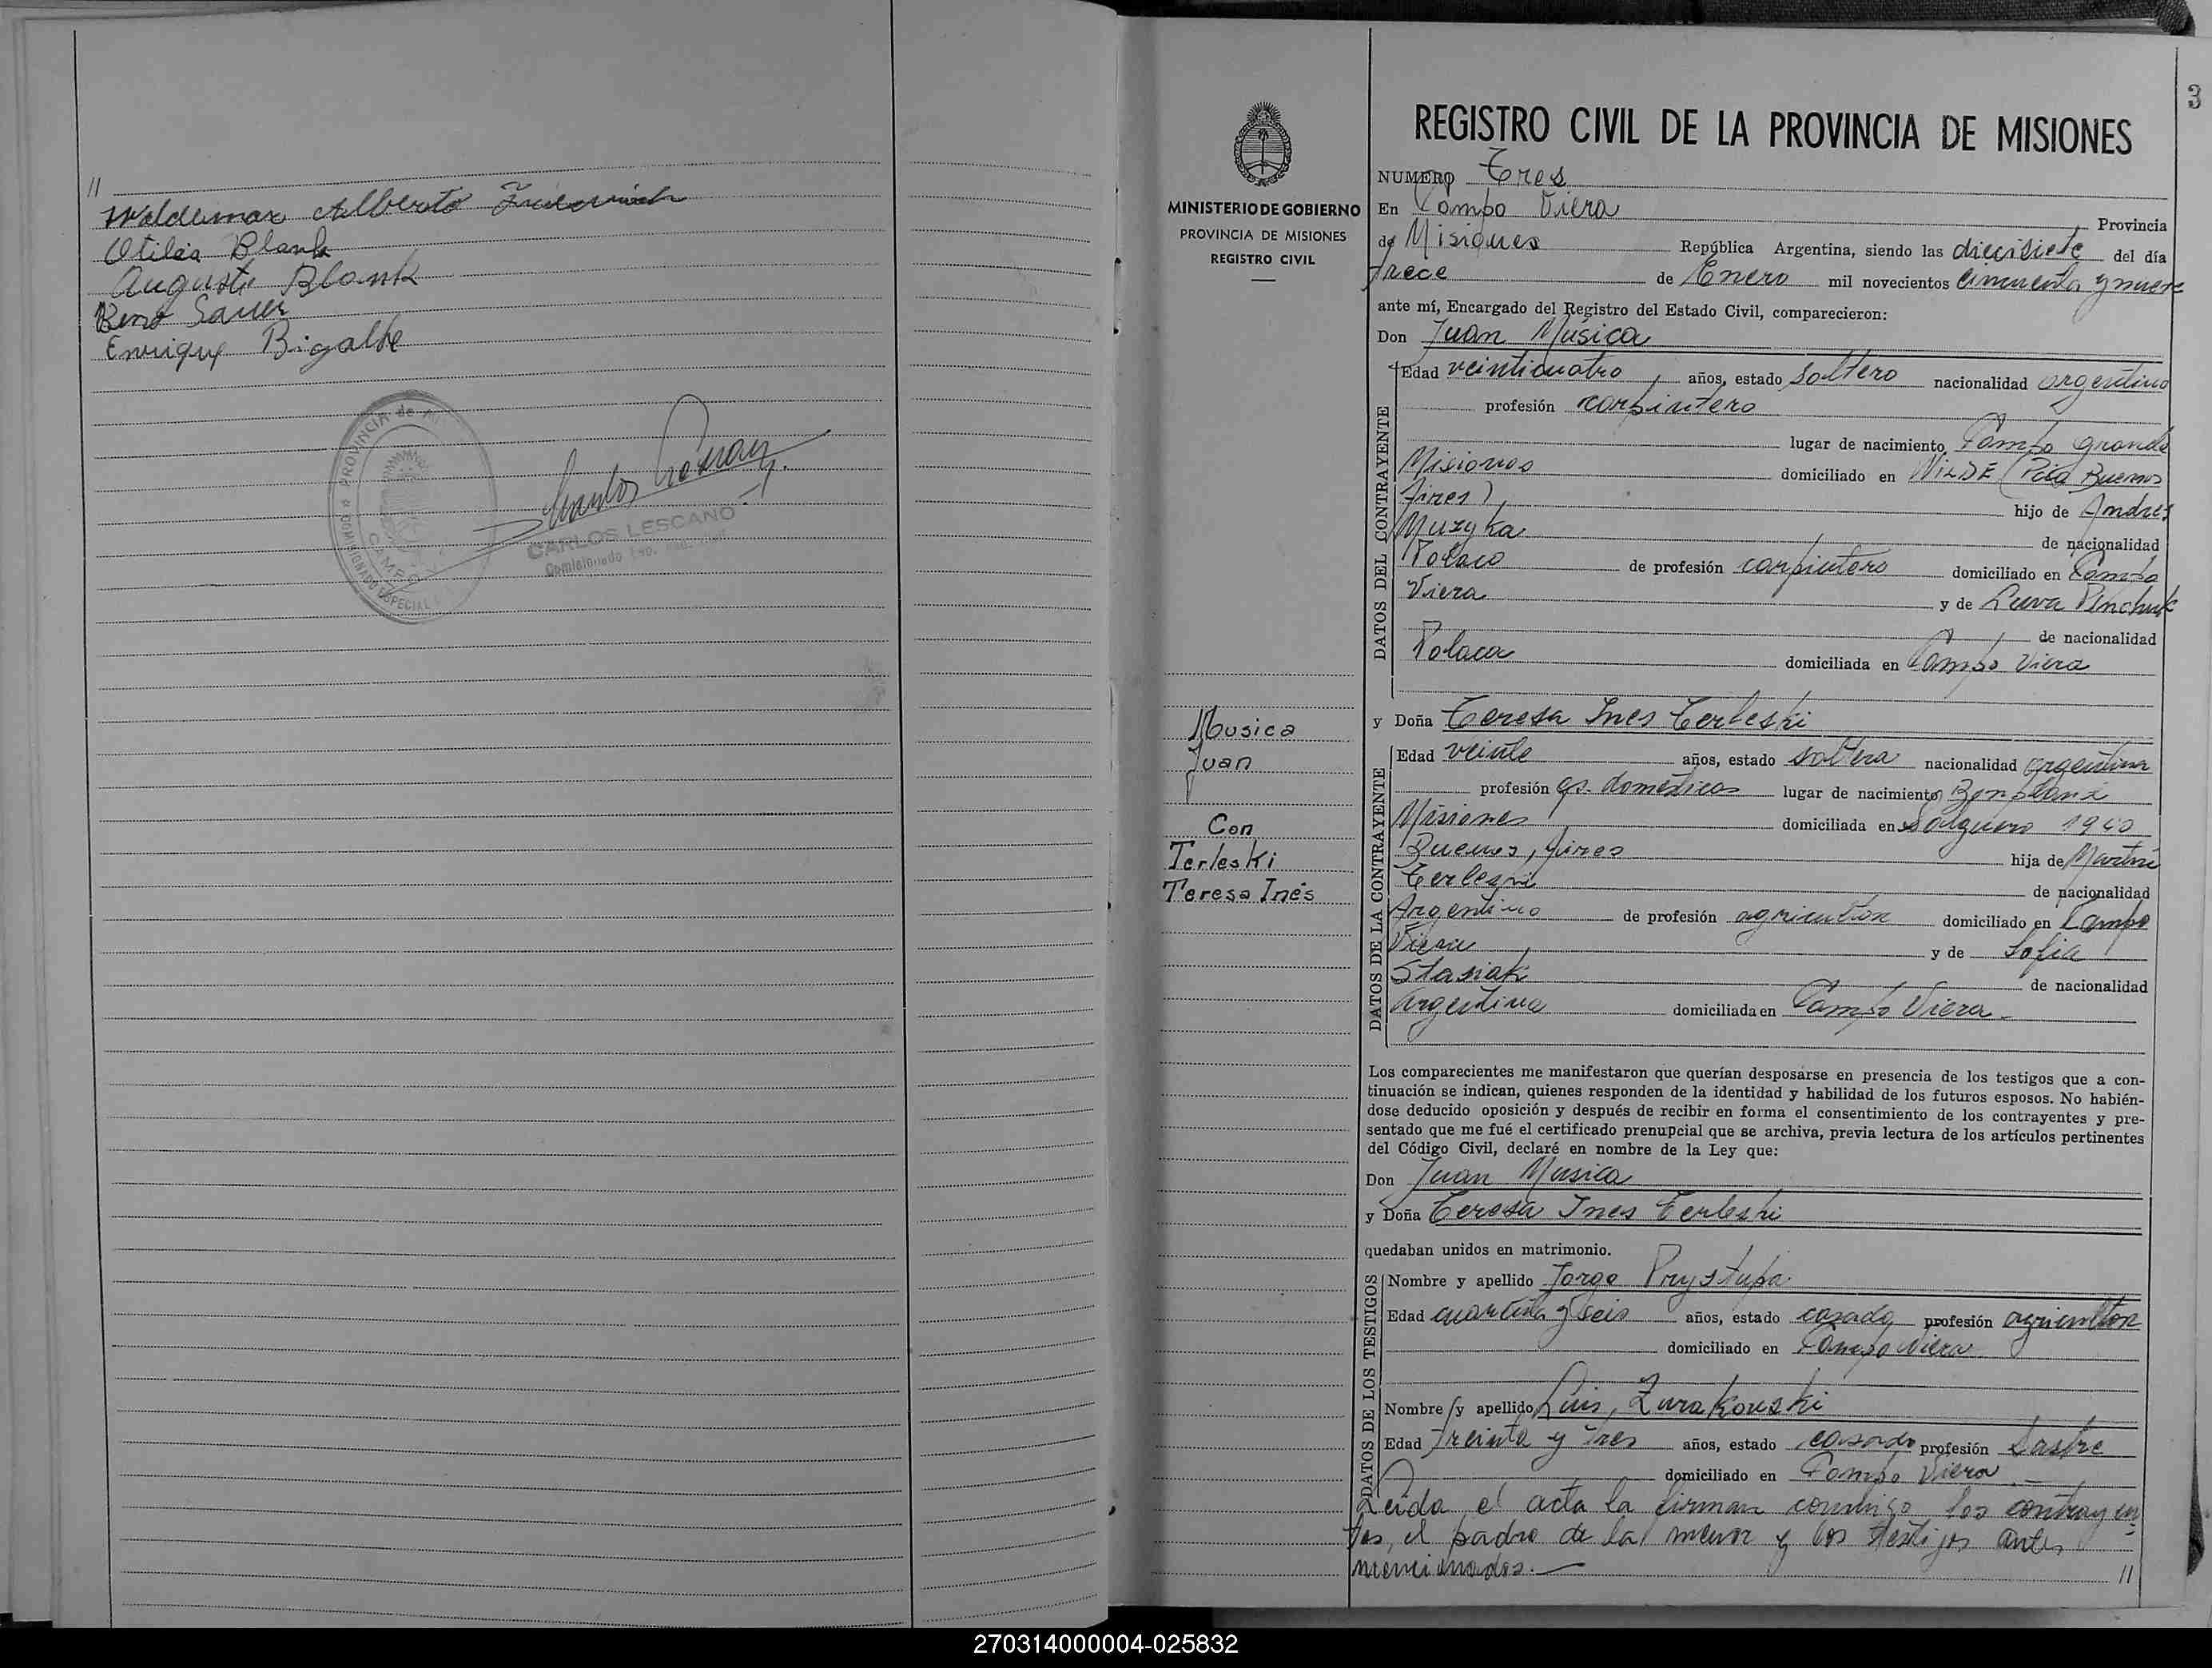 //
Waldemar Alberto
Otilia Blank
Auguste Blank
Beno Sauer
Enrique Bigalke
PROVINCIA de
COMISIONADO ESPECIAL
CARLOS LESCANO
Comisionado
3
REGISTRO CIVIL DE LA PROVINCIA DE MISIONES
MINISTERIO DE GOBIERNO
PROVINCIA DE MISIONES
REGISTRO CIVIL
NUMERO Tres
En Campo Viera Provincia
de Misiones República Argentina, siendo las diecisiete del día
trece de Enero mil novecientos cincuenta y nueve
ante mí, Encargado del Registro del Estado Civil, comparecieron:
Don Juan Musica
DATOS DEL CONTRAYENTE
Edad veinticuatro años, estado soltero nacionalidad argentino
profesión carpintero
lugar de nacimiento Campo Grande
Misiones domiciliado en WILDE (Pcia Buenos
Aires) hijo de Andrés
Muzyka de nacionalidad
Polaco de profesión carpintero domiciliado en Campo
Viera y de Luva Pinchuk
de nacionalidad
Polaca domiciliada en Campo Viera
Musica
Juan
Con
Terleski
Teresa Inés
y Doña Teresa Ines Terleski
DATOS DE LA CONTRAYENTE
Edad veinte años, estado soltera nacionalidad argentina
profesión qs. domésticos lugar de nacimiento Bonpland
Misiones domiciliada en Salguero 1940
Buenos Aires hija de Martin
Terleski de nacionalidad
Argentino de profesión agricultor domiciliado en Campo
Viera y de Sofia
Stasiak de nacionalidad
Argentina domiciliada en Campo Viera
Los comparecientes me manifestaron que querían desposarse en presencia de los testigos que a con-
tinuación se indican, quienes responden de la identidad y habilidad de los futuros esposos. No habién-
dose deducido oposición y después de recibir en forma el consentimiento de los contrayentes y pre-
sentado que me fué el certificado prenupcial que se archiva, previa lectura de los artículos pertinentes
del Código Civil, declaré en nombre de la Ley que:
Don Juan Musica
y Doña Teresa Ines Terleski
quedaban unidos en matrimonio.
DATOS DE LOS TESTIGOS
Nombre y apellido Jorge Prystupa
Edad cuarenta y seis años, estado casado profesión agricultor
domiciliado en Campo Viera
Nombre y apellido Luis Zurakouski
Edad Treinta y tres años, estado casado profesión Sastre
domiciliado en Campo Viera
Leida el acta la firman conmigo los contrayen-
tes, el padre de la menor y los testigos antes
mencionados. //
270314000004-025832